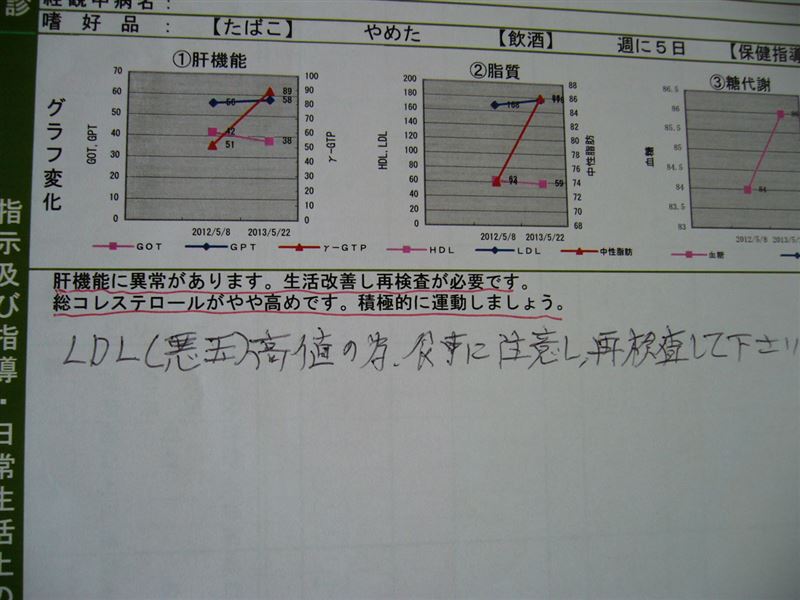 診
経観中病名：
嗜好品： 【たばこ】 やめた 【飲酒】 週に５日 【保健指導
グラフ変化
①肝機能
70 60 50 40 30 20 10 0
100 90 80 70 60 50 40 30 20 10 0
GOT、GPT
γ-GTP
56 42 51
89 58 38
2012/5/8 2013/5/22
GOT GPT γ-GTP
②脂質
200 180 160 140 120 100 80 60 40 20 0
88 86 84 82 80 78 76 74 72 70 68
HDL、LDL
中性脂肪
62 74
59
2012/5/8 2013/5/22
HDL LDL 中性脂肪
③糖代謝
86.5 86 85.5 85 84.5 84 83
血糖
84
2012/5/8 2013/5
血糖
肝機能に異常があります。生活改善し再検査が必要です。
総コレステロールがやや高めです。積極的に運動しましょう。
LDL(悪玉)高値の為、食事に注意し、再検査して下さい
指示及び指導・日常生活上の